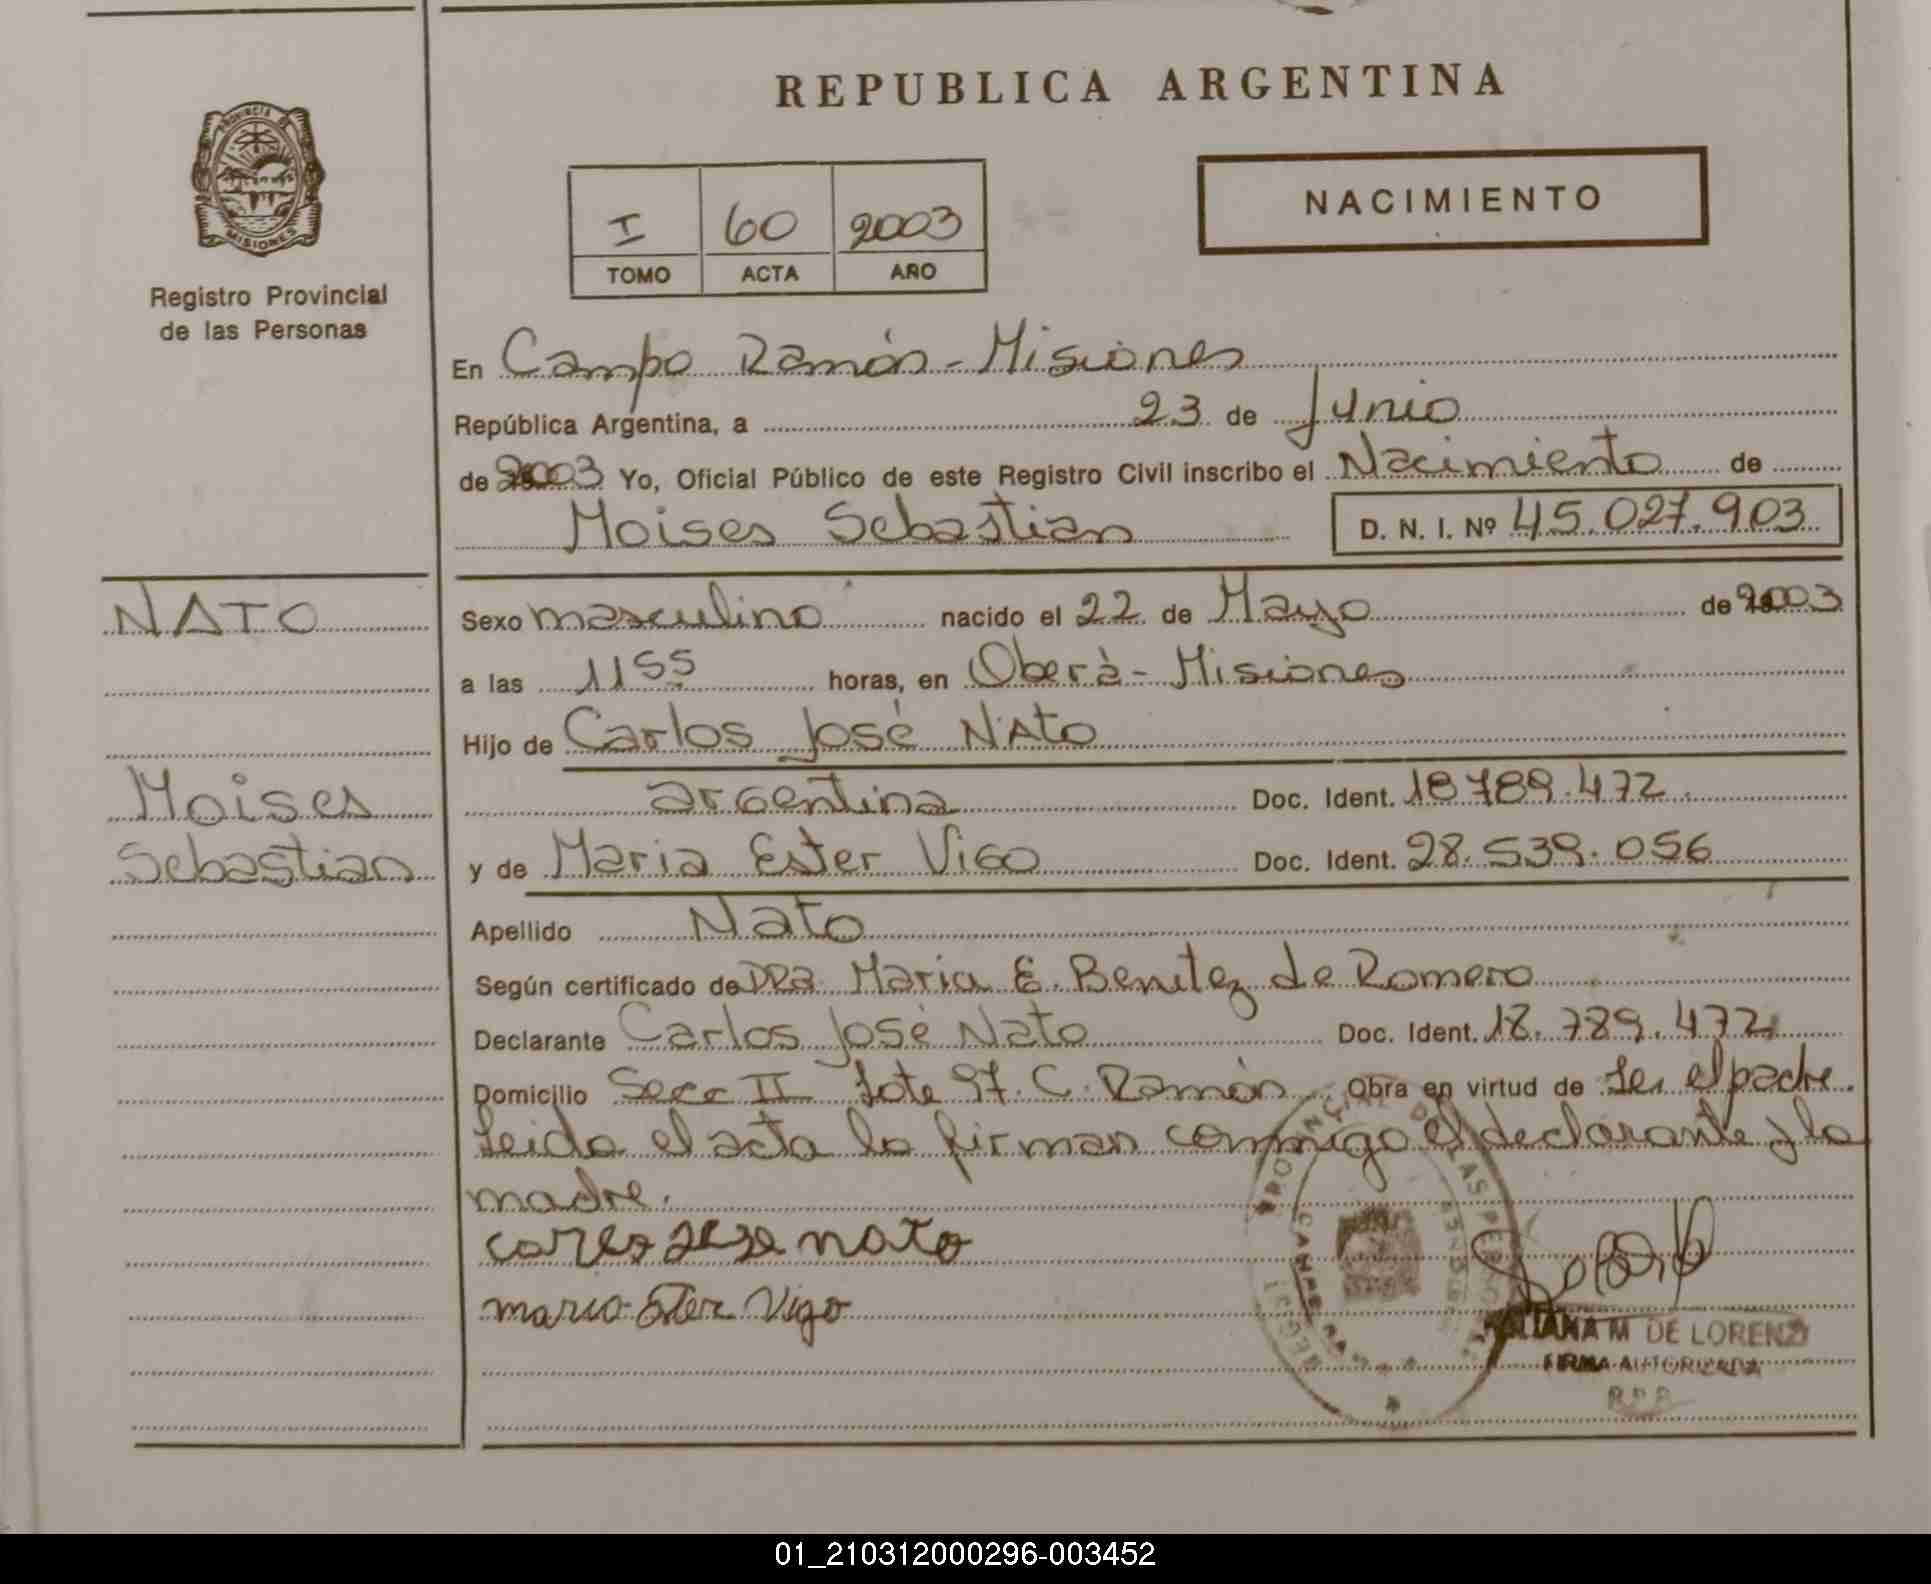 REPUBLICA ARGENTINA
PROVINCIA DE MISIONES
Registro Provincial
de las Personas
I 60 2003
TOMO ACTA AÑO
NACIMIENTO
En Campo Ramón - Misiones
República Argentina, a 23 de Junio
de 2003 Yo, Oficial Público de este Registro Civil inscribo el Nacimiento de
Moises Sebastian D. N. I. Nº 45.027.903
NATO
Moises
Sebastian
Sexo masculino nacido el 22 de Mayo de 2003
a las 11 55 horas, en Oberá - Misiones
Hijo de Carlos José Nato
argentina Doc. Ident. 18.789.472
y de Maria Ester Vigo Doc. Ident. 28.539.056
Apellido Nato
Según certificado de DRA Maria E. Benitez de Romero
Declarante Carlos José Nato Doc. Ident. 18.789.472
Domicilio Secc II Lote 97. C. Ramón Obra en virtud de ser el padre.
Leida el acta la firman conmigo el declarante y la
madre.
carlos jose nato
maria Ester Vigo
M DE LORENZI
FIRMA AUTORIZADA
R.P.P.
01_210312000296-003452